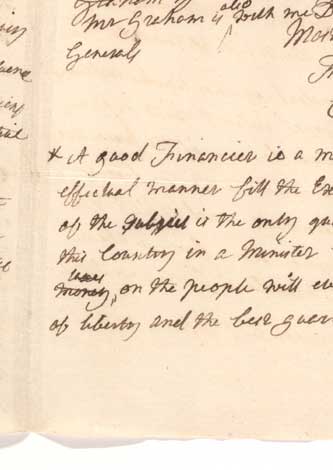 also
Mr Graham is with me
Generals
* A good Financier is a m
effectual manner fill the Ex
of the Subject is the only qu
this Country in a Minister
taxes
money, on the people will e
of liberty and the best guar